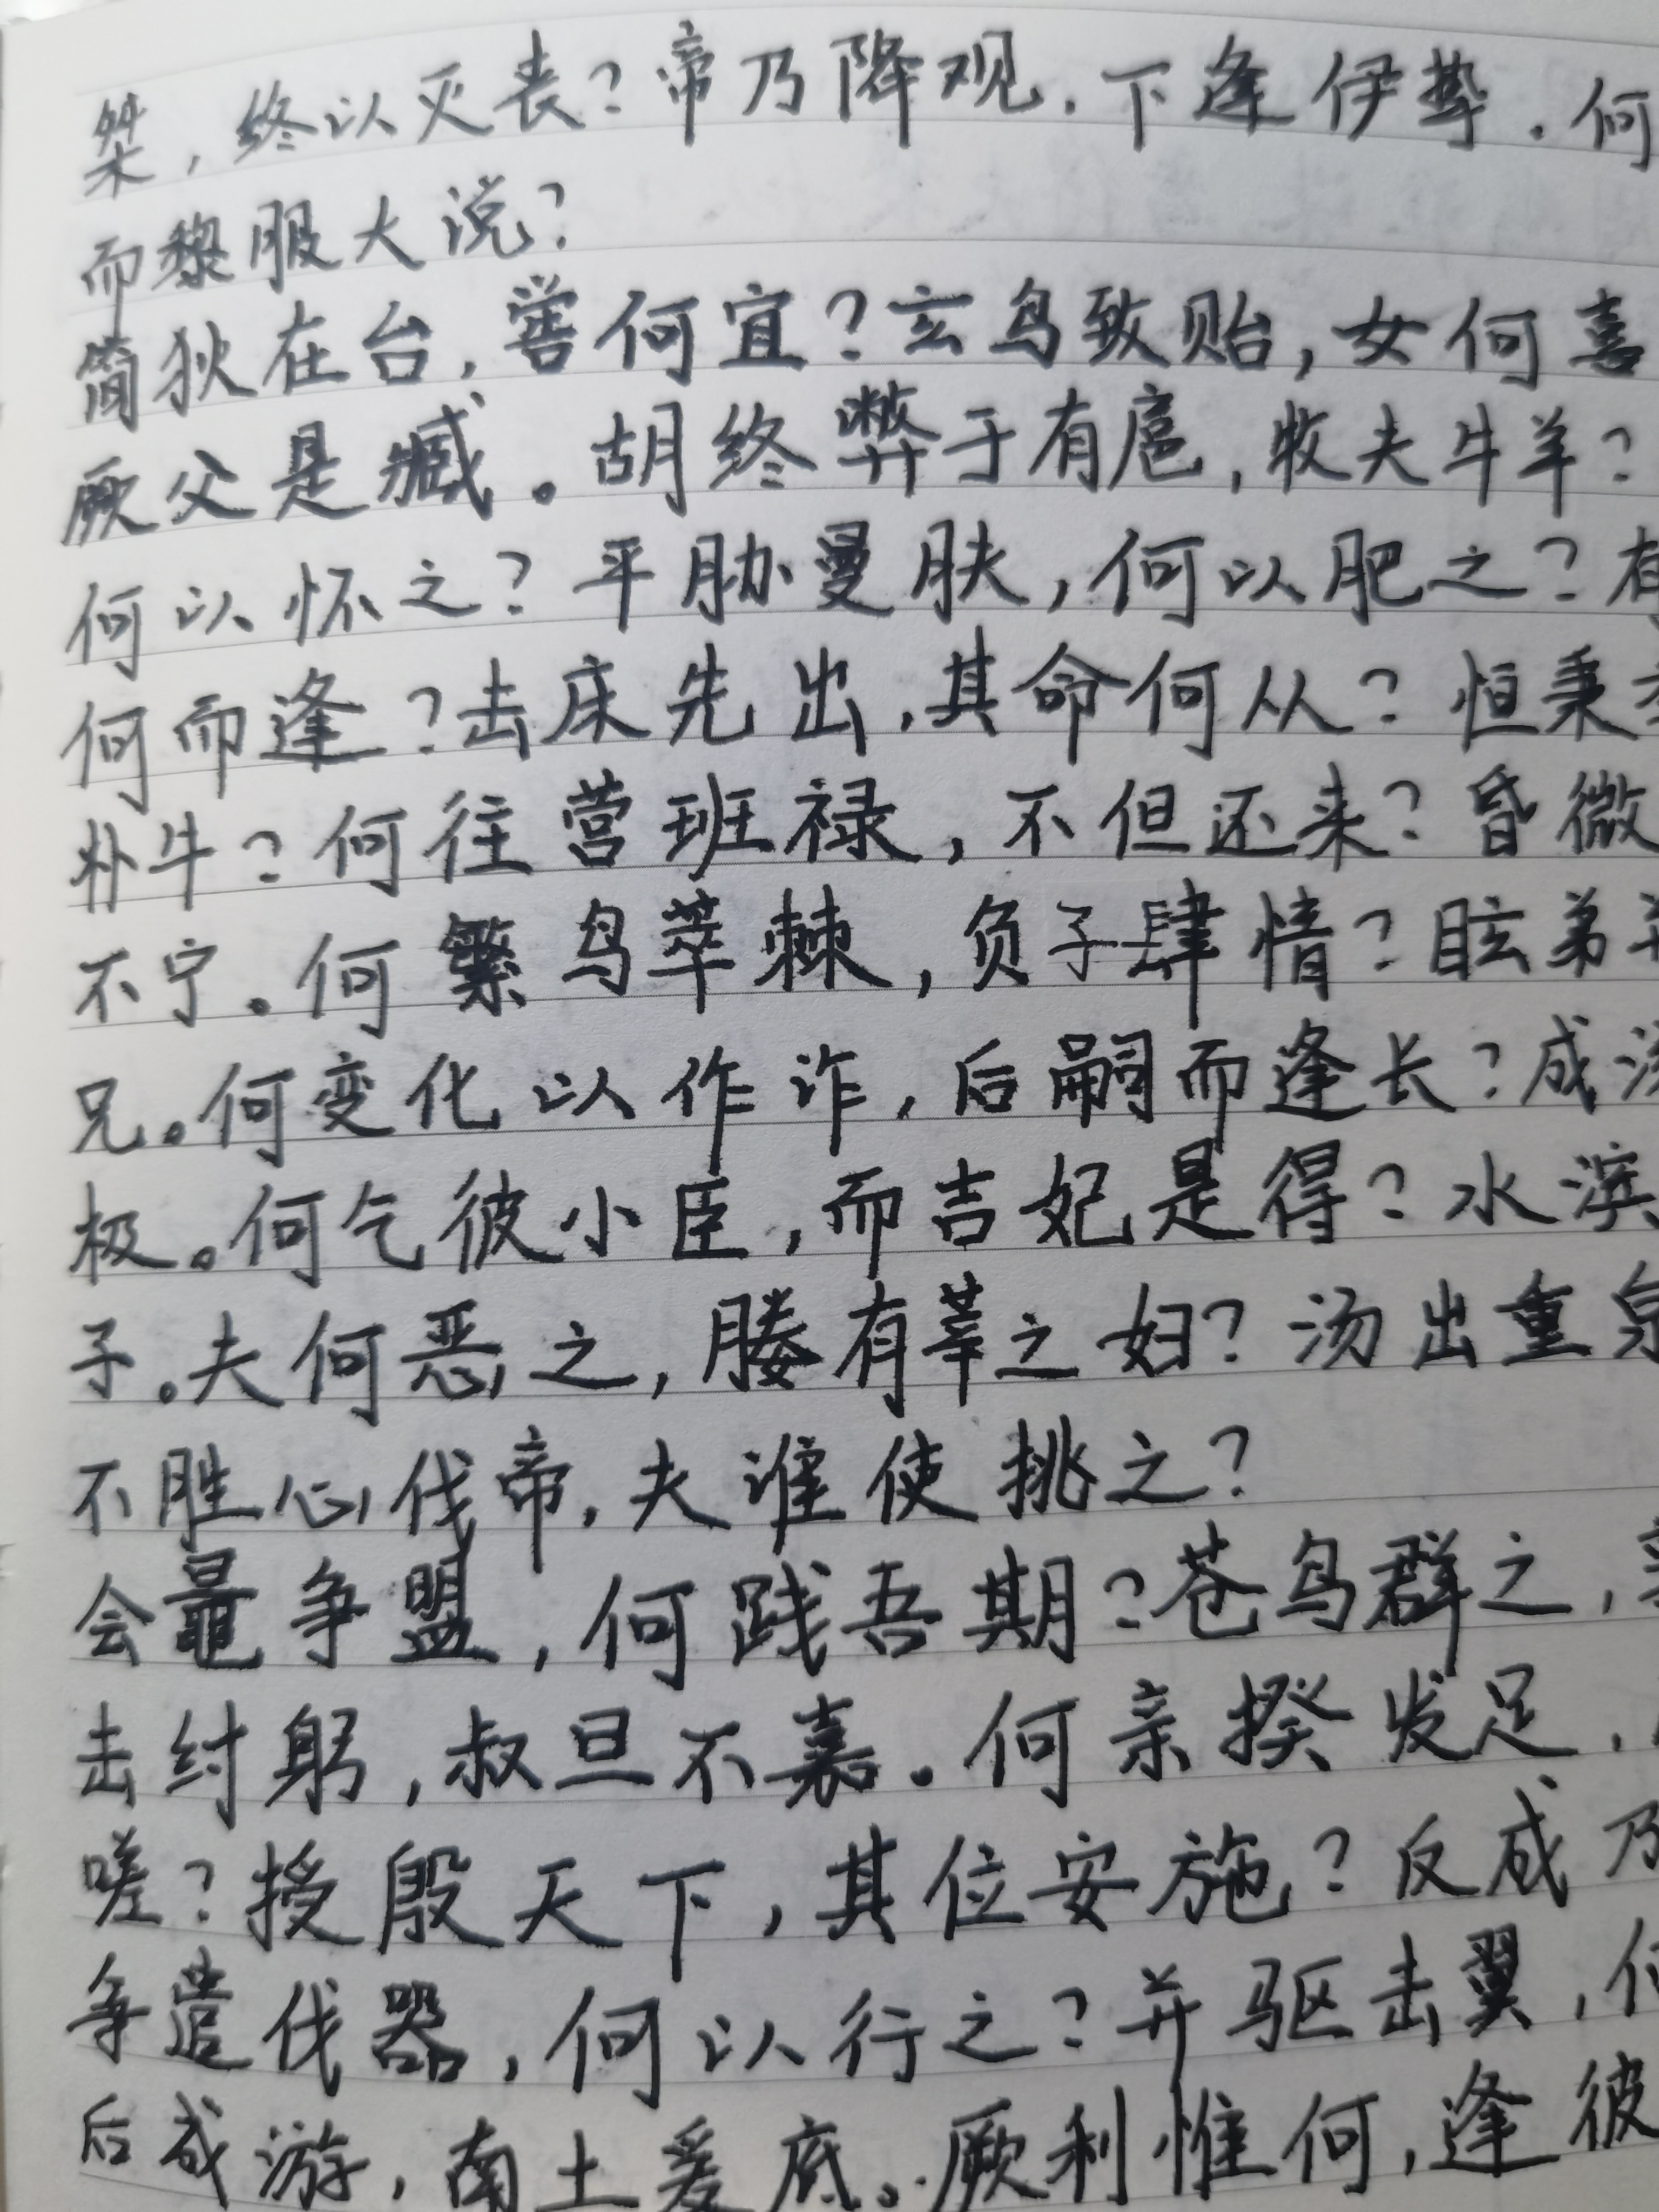 桀，终以灭丧？帝乃降观，下逢伊挚。何
而黎服大说？
简狄在台，喾何宜？玄鸟致贻，女何喜
厥父是臧。胡终弊于有扈，牧夫牛羊？
何以怀之？平胁曼肤，何以肥之？有
何而逢？击床先出，其命何从？恒秉季
朴牛？何往营班禄，不但还来？昏微
不宁。何繁鸟萃棘，负子肆情？眩弟并
兄。何变化以作诈，后嗣而逢长？成汤
极。何乞彼小臣，而吉妃是得？水滨
子。夫何恶之，媵有莘之妇？汤出重泉
不胜心伐帝，夫谁使挑之？
会鼂争盟，何践吾期？苍鸟群之，
击纣躬，叔旦不嘉。何亲揆发足，
嗟？授殷天下，其位安施？反成乃
争遣伐器，何以行之？并驱击翼，何
后成游，南土爰底。厥利惟何，逢彼